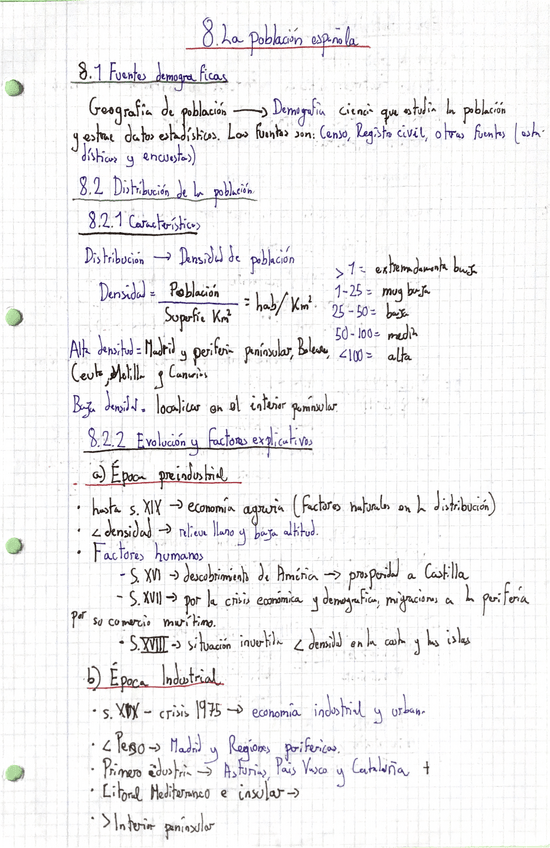 8. La Población española
8.1 Fuentes demograficas
Geografía de población → Demografía ciencia que estudia la población
y extrae datos estadísticos. Las fuentes son: Censo, Registro civil, otras fuentes (esta-
dísticas y encuestas)
8.2 Distribución de la población
8.2.1 Características
Distribución → Densidad de población
Densidad = Población / Superfie Km² = hab/Km²
> 1 = extremadamente baja
1-25 = muy baja
25-50 = baja
50-100 = media
<100 = alta
Alta densitud = Madrid y periferia peninsular, Baleares,
Ceuta, Melilla y Canarias
Baja densidad = localizar en el interior peninsular
8.2.2 Evolución y factores explicativos
a) Época preindustrial
· hasta s. XIX → economía agraria (factores naturales en la distribución)
· < densidad → relieve llano y baja altitud.
· Factores humanos
- S. XVI → descubrimiento de América → prosperidad a Castilla
- S. XVII → por la crisis económica y demografica, migraciones a la perifería
por su comercio marítimo.
- S. XVIII → situación invertida < densidad en la costa y las islas
b) Época Industrial
· s. XIX - crisis 1975 → economía industrial y urban.
· < Peso → Madrid y Regiones perifericas.
· Primera idustria → Asturias, País Vasco y Cataluña +
· Litoral Mediterraneo e insular →
· > Interior peninsular